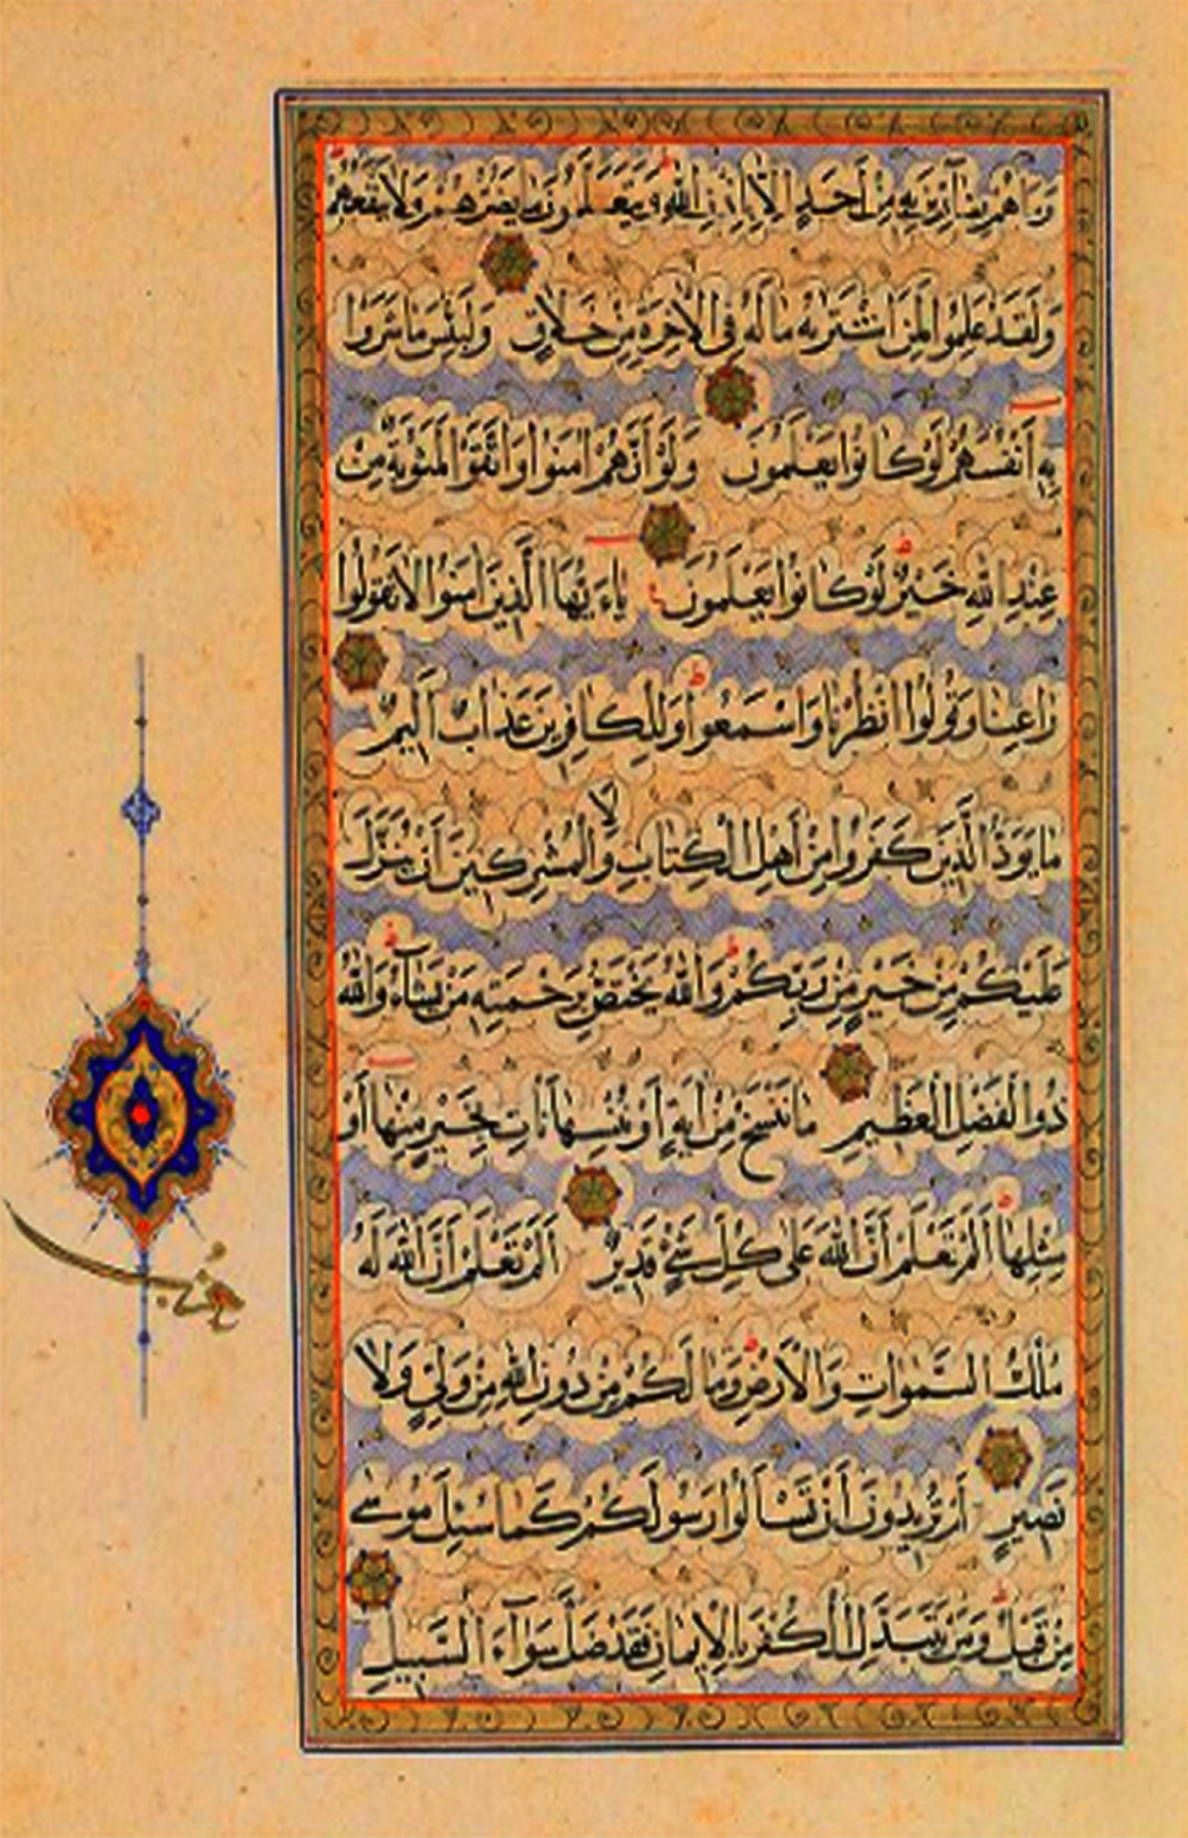 وَمَا هُمْ بِضَآرِّينَ بِهِ مِنْ أَحَدٍ اِلَّا بِاِذْنِ اللّٰهِ وَيَتَعَلَّمُونَ مَا يَضُرُّهُمْ وَلَا يَنْفَعُهُمْ
وَلَقَدْ عَلِمُوا لَمَنِ اشْتَرٰيهُ مَا لَهُ فِي الْاٰخِرَةِ مِنْ خَلَاقٍ وَلَبِئْسَ مَا شَرَوْا
بِهِ أَنْفُسَهُمْ لَوْ كَانُوا يَعْلَمُونَ وَلَوْ أَنَّهُمْ اٰمَنُوا وَاتَّقَوْا لَمَثُوبَةٌ مِنْ
عِنْدِ اللّٰهِ خَيْرٌ لَوْ كَانُوا يَعْلَمُونَ يَاءَيُّهَا الَّذِينَ اٰمَنُوا لَا تَقُولُوا
رَاعِنَا وَقُولُوا انْظُرْنَا وَاسْمَعُوا وَلِلْكَافِرِينَ عَذَابٌ أَلِيمٌ
مَا يَوَدُّ الَّذِينَ كَفَرُوا مِنْ أَهْلِ الْكِتَابِ وَلَا الْمُشْرِكِينَ أَنْ يُنَزَّلَ
عَلَيْكُمْ مِنْ خَيْرٍ مِنْ رَبِّكُمْ وَاللّٰهُ يَخْتَصُّ بِرَحْمَتِهِ مَنْ يَشَآءُ وَاللّٰهُ
ذُوا الْفَضْلِ الْعَظِيمِ مَا نَنْسَخْ مِنْ اٰيَةٍ أَوْ نُنْسِهَا نَاْتِ بِخَيْرٍ مِنْهَا أَوْ
مِثْلِهَا أَلَمْ تَعْلَمْ أَنَّ اللّٰهَ عَلٰى كُلِّ شَيْءٍ قَدِيرٌ أَلَمْ تَعْلَمْ أَنَّ اللّٰهَ لَهُ
مُلْكُ السَّمٰوَاتِ وَالْأَرْضِ وَمَا لَكُمْ مِنْ دُونِ اللّٰهِ مِنْ وَلِيٍّ وَلَا
نَصِيرٍ أَمْ تُرِيدُونَ أَنْ تَسْأَلُوا رَسُولَكُمْ كَمَا سُئِلَ مُوسٰى
مِنْ قَبْلُ وَمَنْ يَتَبَدَّلِ الْكُفْرَ بِالْاِيمَانِ فَقَدْ ضَلَّ سَوَآءَ السَّبِيلِ